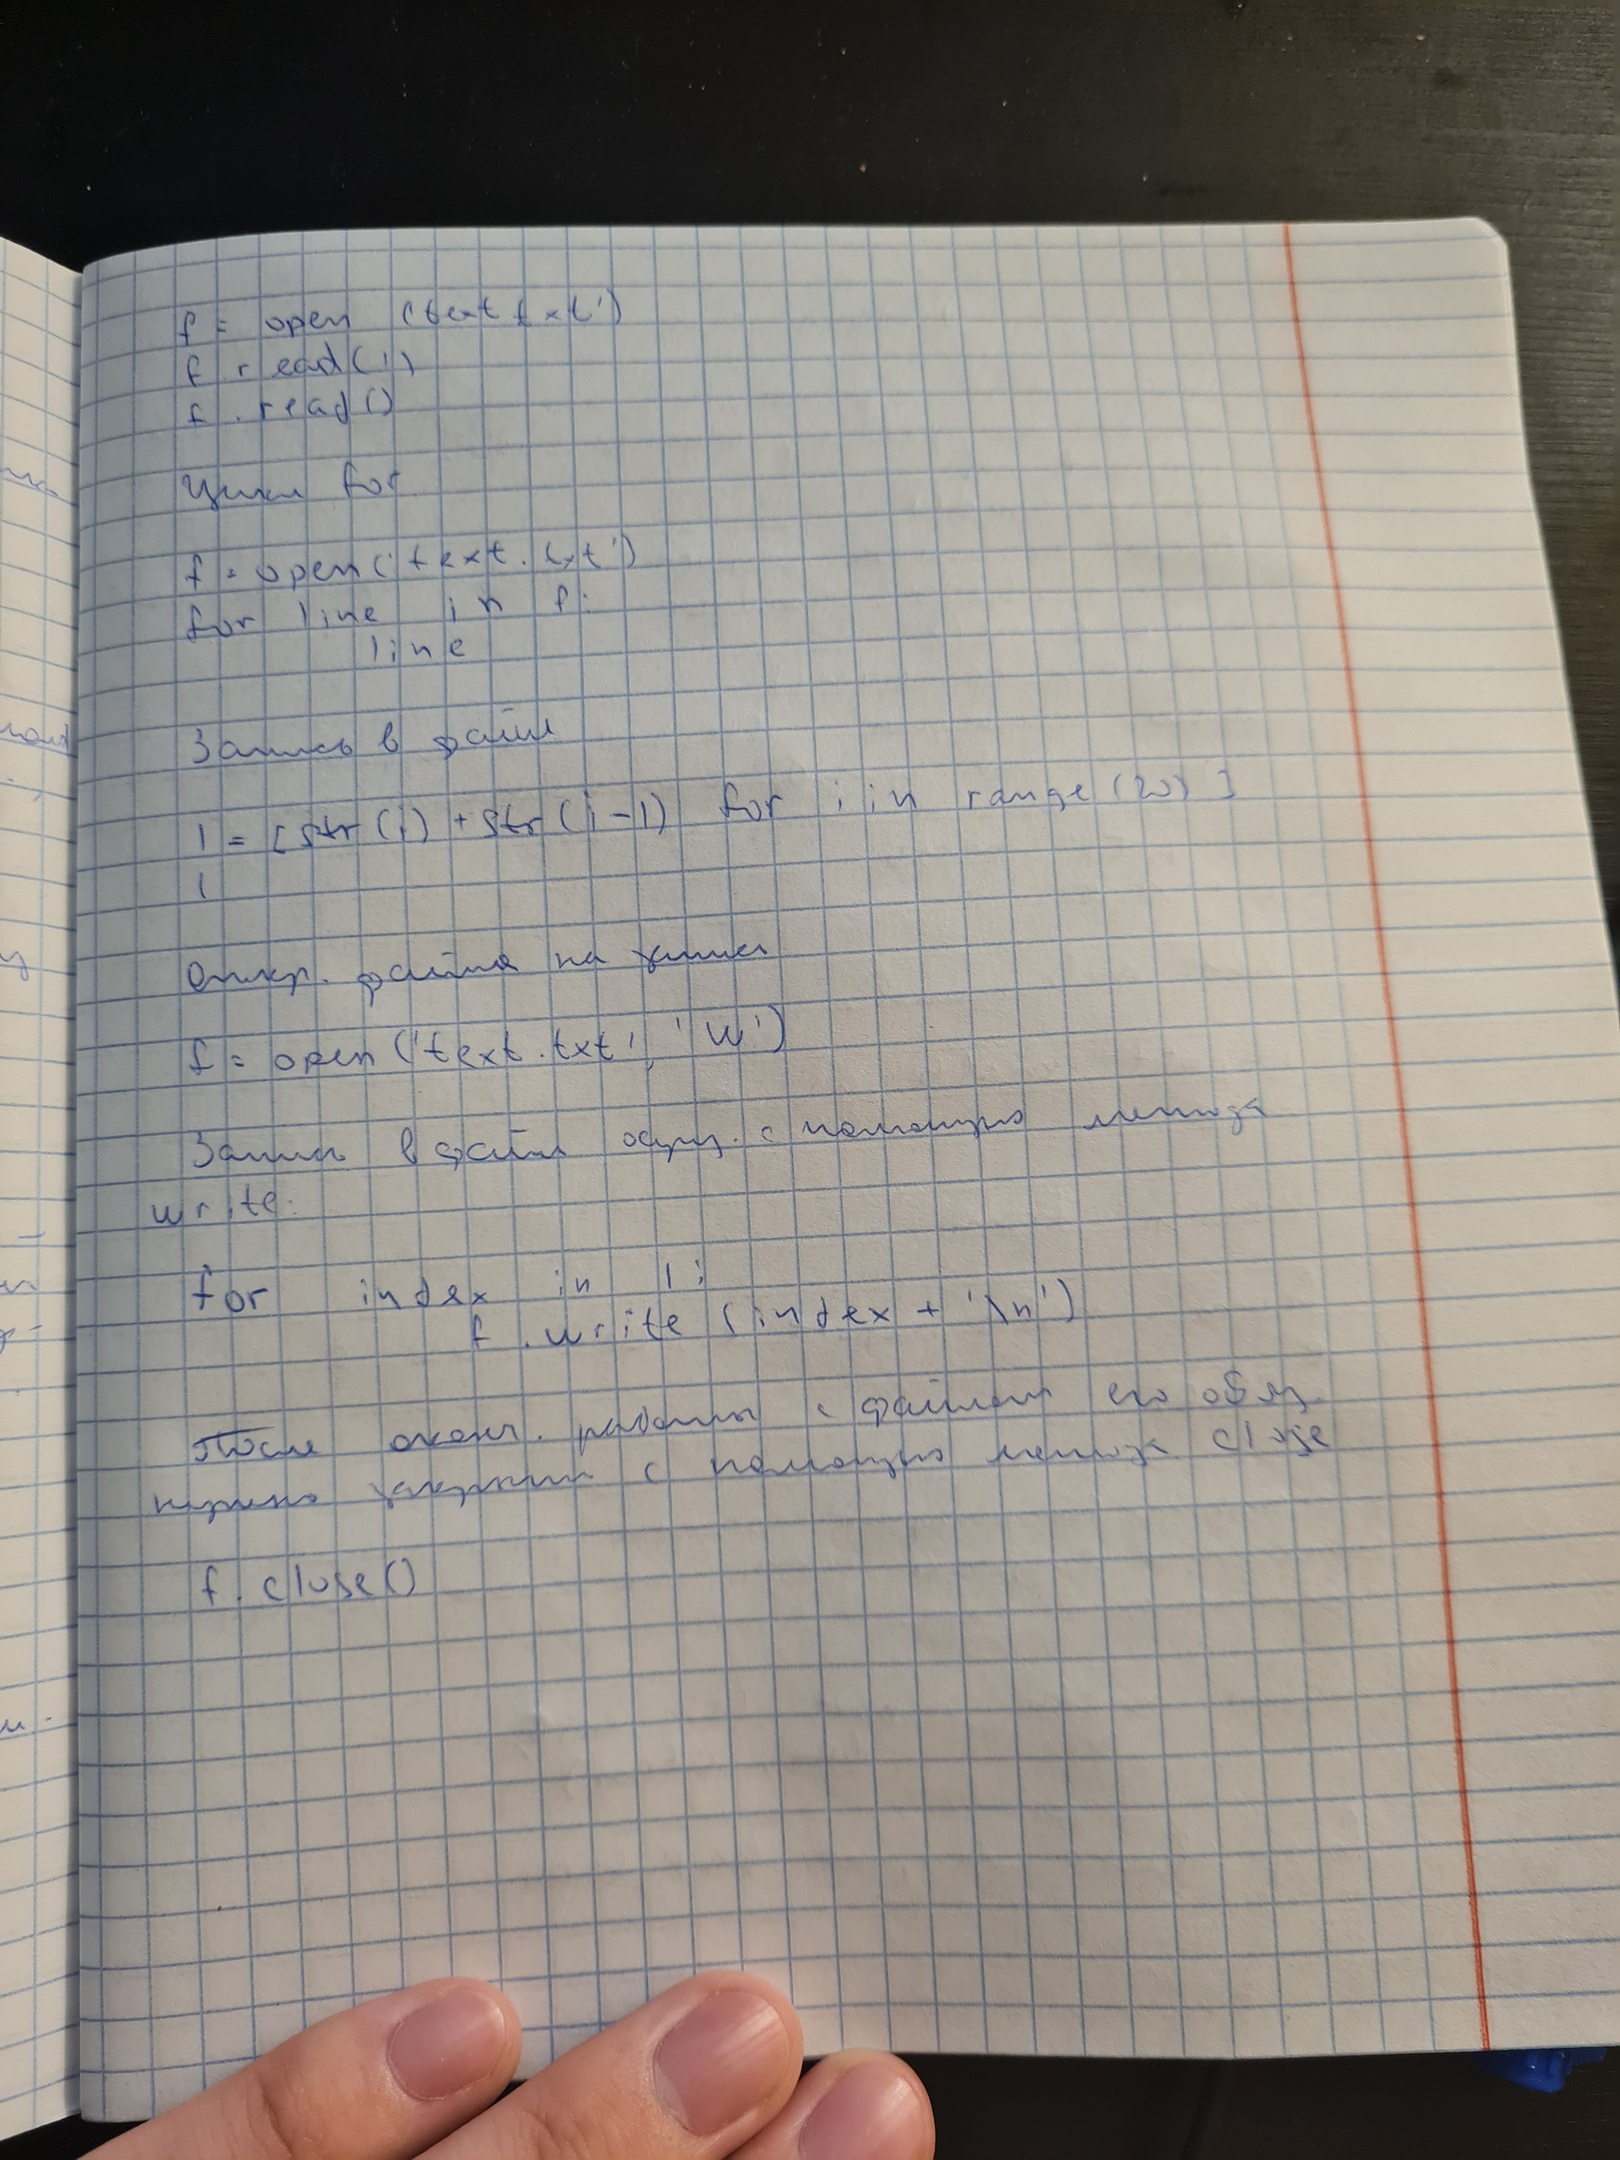 f = open ('text.txt')
f.read(1)
f.read()
Цикл for
f = open('text.txt')
for line in f:
line
Запись в файл
l = [str(i) + str(i-1) for i in range(20)]
l
Откр. файла на запись
f = open('text.txt', 'w')
Запись в файл осущ. с помощью метода
write:
for index in l:
f.write(index + '\n')
После оконч. работы с файлом его обяз.
нужно закрыть с помощью метода close
f.close()